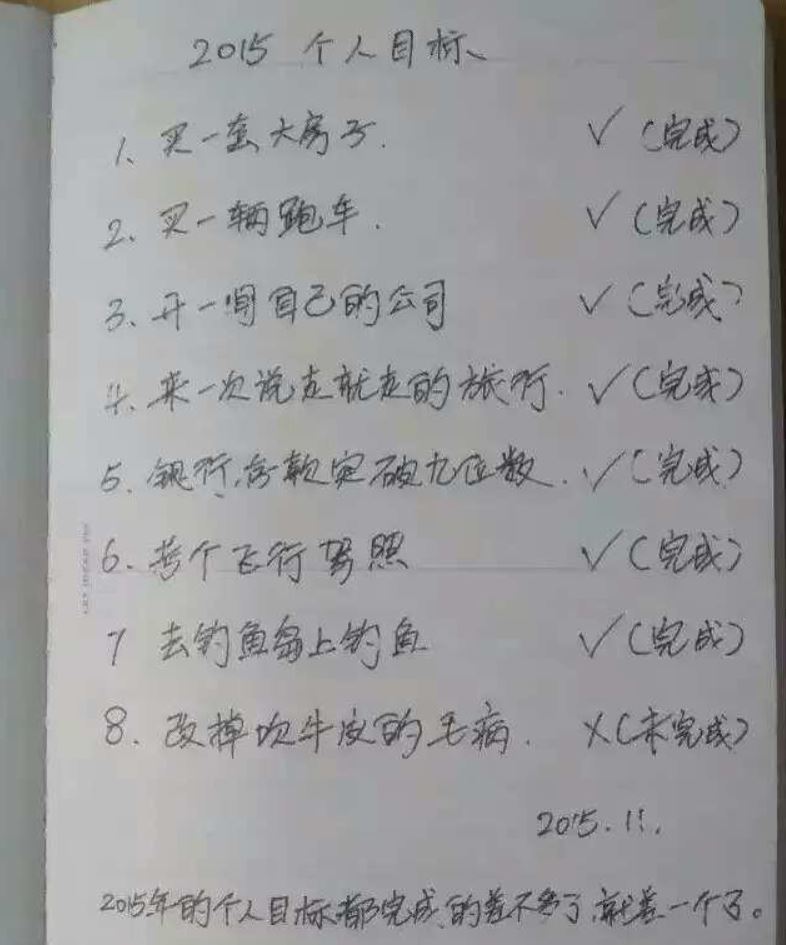 2015 个人目标
1、买一套大房子. √ (完成)
2、买一辆跑车. √ (完成)
3、开一间自己的公司 √ (完成)
4、来一次说走就走的旅行. √ (完成)
5、银行存款突破九位数. √ (完成)
6、考个飞行驾照 √ (完成)
7 去钓鱼岛上钓鱼 √ (完成)
8、改掉吹牛皮的毛病. X (未完成)
2015.11.
2015年的个人目标都完成的差不多了,就差一个了。